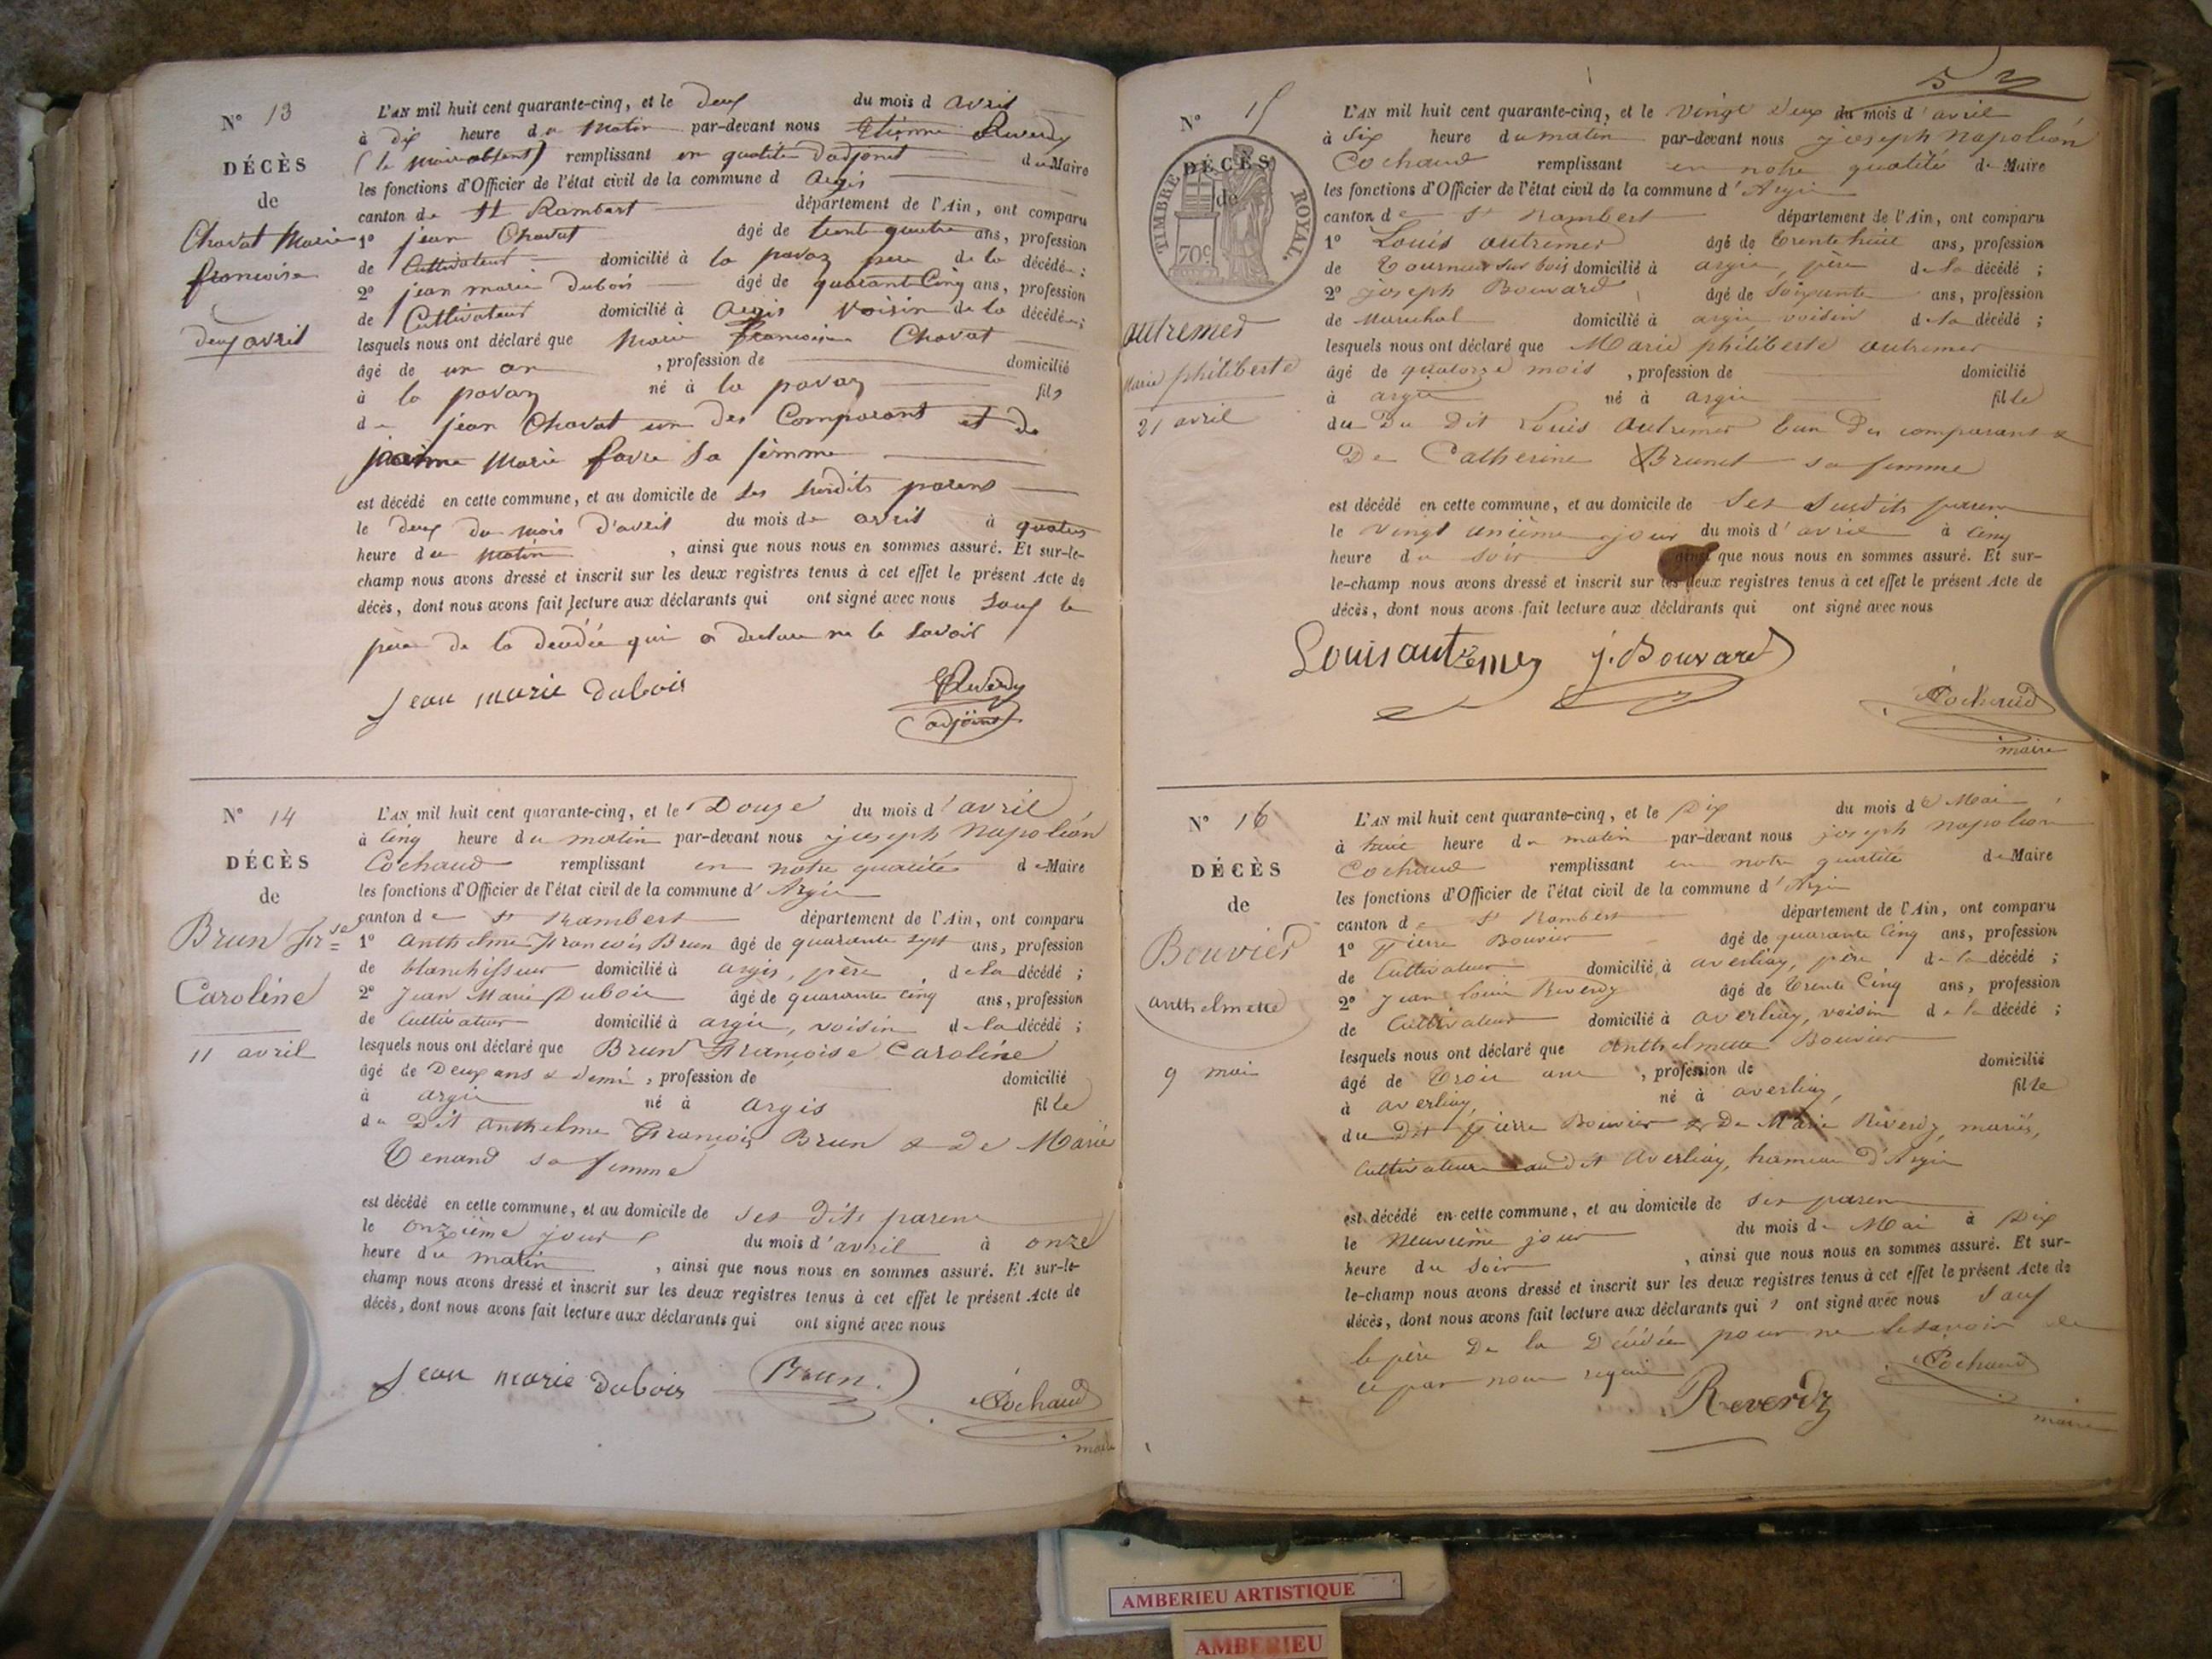 N° 13
DÉCÈS
de
Chavat Marie
francoise
deux avril
L'AN mil huit cent quarante-cinq, et le deux du mois d avril
à dix heure du matin par-devant nous Etienne Reverdy
(le maire absent) remplissant en qualité d'adjoint du Maire
les fonctions d'Officier de l'état civil de la commune d Argis
canton de St Rambert département de l'Ain, ont comparu
1° jean Chavat âgé de trente quatre ans, profession
de Cultivateur domicilié à la pavaz pere de la décédée;
2° jean marie dubois âgé de quarant Cinq ans, profession
de Cultivateur domicilié à Argis voisin de la décédée;
lesquels nous ont déclaré que Marie francoise Chavat
âgé de un an , profession de domicilié
à la pavaz né à la pavaz fil
de jean Chavat un des Comparant et de
Marie favre sa femme
est décédé en cette commune, et au domicile de ses susdits parens
le deux du mois d'avril du mois de avril à quatre
heure du matin , ainsi que nous nous en sommes assuré. Et sur-le-
champ nous avons dressé et inscrit sur les deux registres tenus à cet effet le présent Acte de
décès, dont nous avons fait lecture aux déclarants qui ont signé avec nous sauf le
père de la décédée qui a declare ne le savoir
Jean marie dubois
Reverdy
adjoint
N° 14
DÉCÈS
de
Brun fr.se
Caroline
11 avril
L'AN mil huit cent quarante-cinq, et le Douze du mois d'avril
à Cinq heure du matin par-devant nous joseph Napoléon
Cochaud remplissant en notre qualité de Maire
les fonctions d'Officier de l'état civil de la commune d'Argis
canton de St Rambert département de l'Ain, ont comparu
1° Anthelme François Brun âgé de quarante sept ans, profession
de blanchisseur domicilié à argis, père de la décédé ;
2° Jean Marie Dubois âgé de quarante cinq ans, profession
de Cultivateur domicilié à argis, voisin de la décédé ;
lesquels nous ont déclaré que Brun Françoise Caroline
âgé de Deux ans & demi , profession de domicilié
à argis né à argis fille
du Dit anthelme François Brun & De Marie
Tenand sa femme
est décédé en cette commune, et au domicile de ses dits parens
le onzième jour du mois d'avril à onze
heure du matin , ainsi que nous nous en sommes assuré. Et sur-le-
champ nous avons dressé et inscrit sur les deux registres tenus à cet effet le présent Acte de
décès, dont nous avons fait lecture aux déclarants qui ont signé avec nous
Jean marie dubois Brun. Cochaud
maire
N° 15
DÉCÈS
de
TIMBRE ROYAL.
70c
autremer
Marie philiberte
21 avril
L'AN mil huit cent quarante-cinq, et le vingt deux du mois d'avril
à six heure du matin par-devant nous joseph Napoléon
Cochaud remplissant en notre qualité de Maire
les fonctions d'Officier de l'état civil de la commune d'Argis
canton de St Rambert département de l'Ain, ont comparu
1° Louis autremer âgé de trente huit ans, profession
de Tourneur sur bois domicilié à argis, père de la décédé ;
2° joseph Bouvard âgé de soixante ans, profession
de Marechal domicilié à argis voisin de la décédé ;
lesquels nous ont déclaré que Marie philiberte autremer
âgé de quatorze mois , profession de domicilié
à argis né à argis fille
du Du Dit Louis autremer l'un Des comparant &
De Catherine Brunet sa femme
est décédé en cette commune, et au domicile de Ses Susdits parens
le vingt unième jour du mois d'avril à Cinq
heure du soir ainsi que nous nous en sommes assuré. Et sur-
le-champ nous avons dressé et inscrit sur les deux registres tenus à cet effet le présent Acte de
décès, dont nous avons fait lecture aux déclarants qui ont signé avec nous
Louis autremer j. Bouvard
Cochaud
maire
N° 16
DÉCÈS
de
Bouvier
anthelmette
9 mai
L'AN mil huit cent quarante-cinq, et le Dix du mois de Mai
à huit heure du matin par-devant nous joseph Napoléon
Cochaud remplissant en notre qualité de Maire
les fonctions d'Officier de l'état civil de la commune d'Argis
canton de St Rambert département de l'Ain, ont comparu
1° Pierre Bouvier âgé de quarante Cinq ans, profession
de Cultivateur domicilié à averliaz, père de la décédé ;
2° Jean Louis Reverdy âgé de Trente Cinq ans, profession
de Cultivateur domicilié à averliaz, voisin de la décédé ;
lesquels nous ont déclaré que Anthelmette Bouvier
âgé de Trois ans , profession de domicilié
à averliaz, né à averliaz, fille
du Dit Pierre Bouvier & De Marie Reverdy, mariés,
Cultivateurs au dit Averliaz, hameau d'Argis
est décédé en cette commune, et au domicile de ses parens
le Neuvième jour du mois de Mai à Dix
heure du Soir , ainsi que nous nous en sommes assuré. Et sur-
le-champ nous avons dressé et inscrit sur les deux registres tenus à cet effet le présent Acte de
décès, dont nous avons fait lecture aux déclarants qui ont signé avec nous Sauf
le père De la Décédée pour ne le savoir de
ce par nous requis
Reverdy Cochaud
maire
AMBERIEU ARTISTIQUE
AMBERIEU